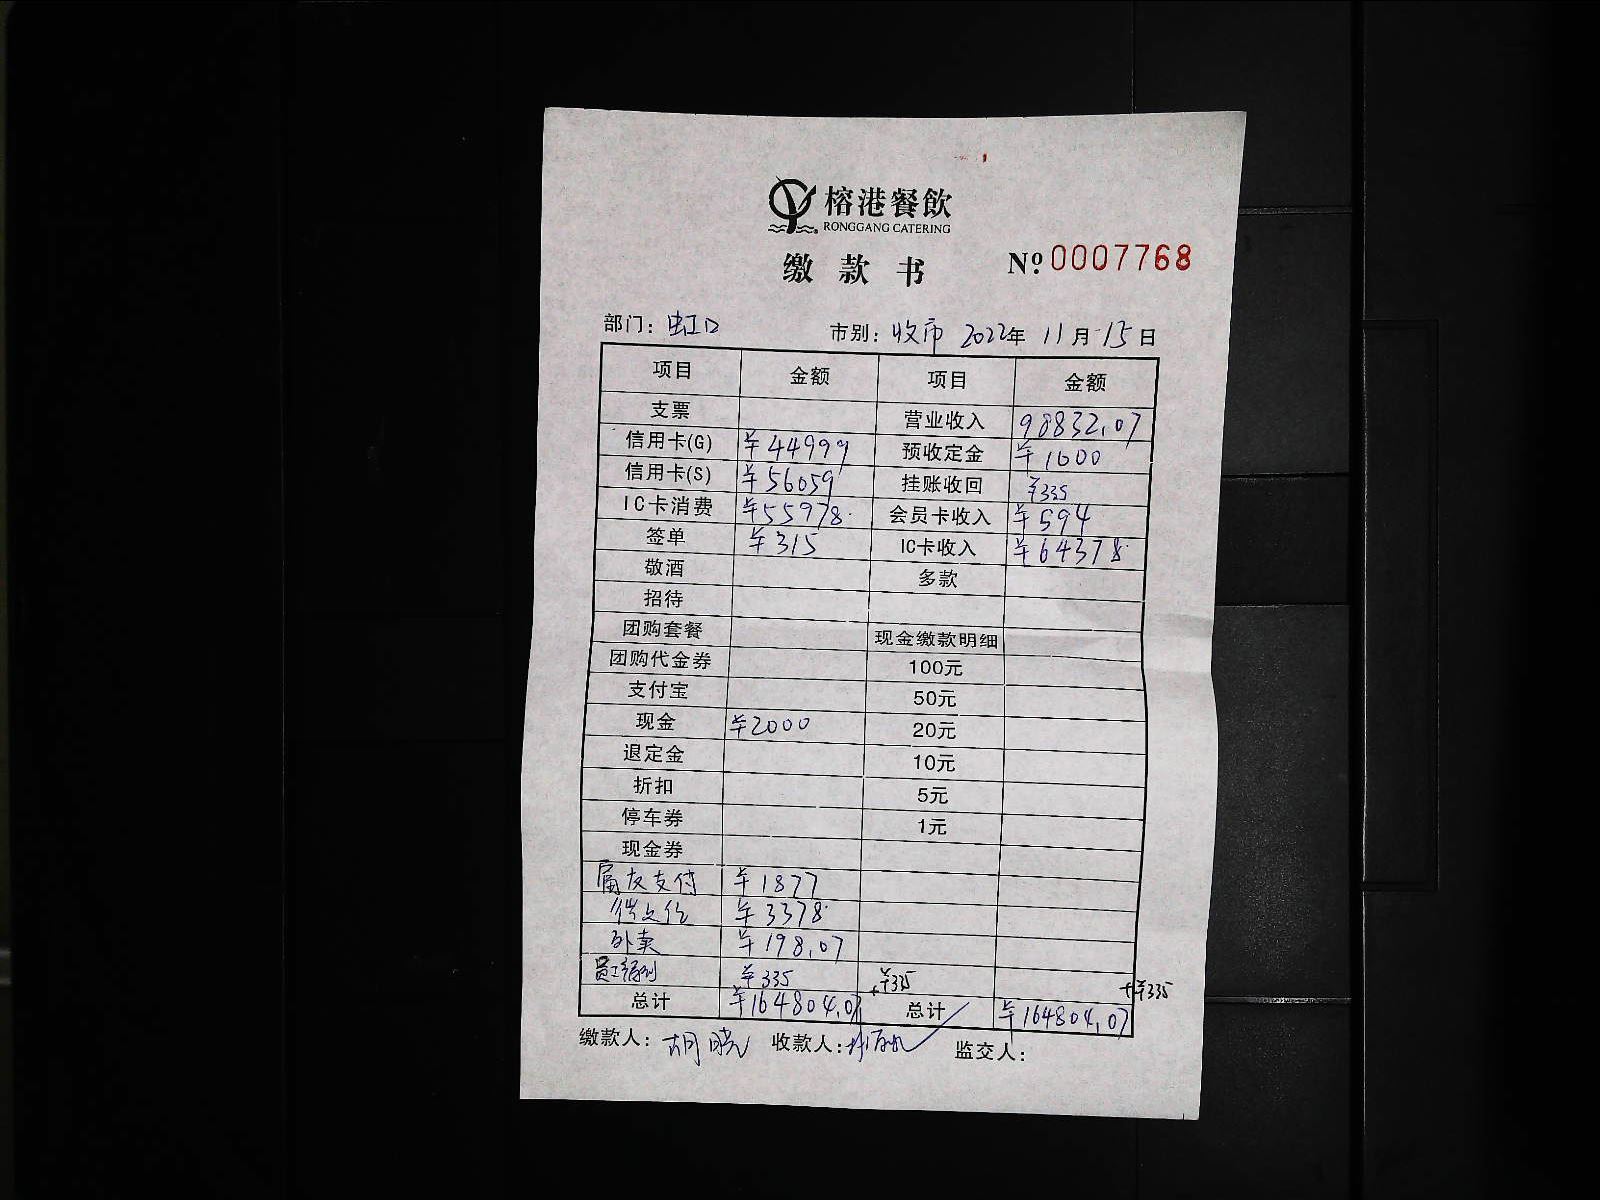 榕港餐飲
RONGGANG CATERING
缴款书 Nº 0007768
部门: 虹口 市别: 收市 2022年 11月 15日
项目 金额 项目 金额
支票 营业收入 98832.07
信用卡(G) ¥44999 预收定金 ¥1000
信用卡(S) ¥56059 挂账收回 ¥335
IC卡消费 ¥55978 会员卡收入 ¥594
签单 ¥315 IC卡收入 ¥64378
敬酒 多款
招待
团购套餐 现金缴款明细
团购代金券 100元
支付宝 50元
现金 ¥2000 20元
退定金 10元
折扣 5元
停车券 1元
现金券
支付 ¥1877
¥3378
外卖 ¥198.07
员工 ¥335 +¥335 +¥335
总计 ¥164804.07 总计 ¥164804.07
缴款人: 胡晓 收款人: 监交人: